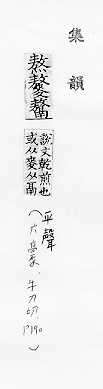 集韻
熬䵅 說文乾煎也
或从麥从鬲
平聲
(六豪．牛刀切 P190)